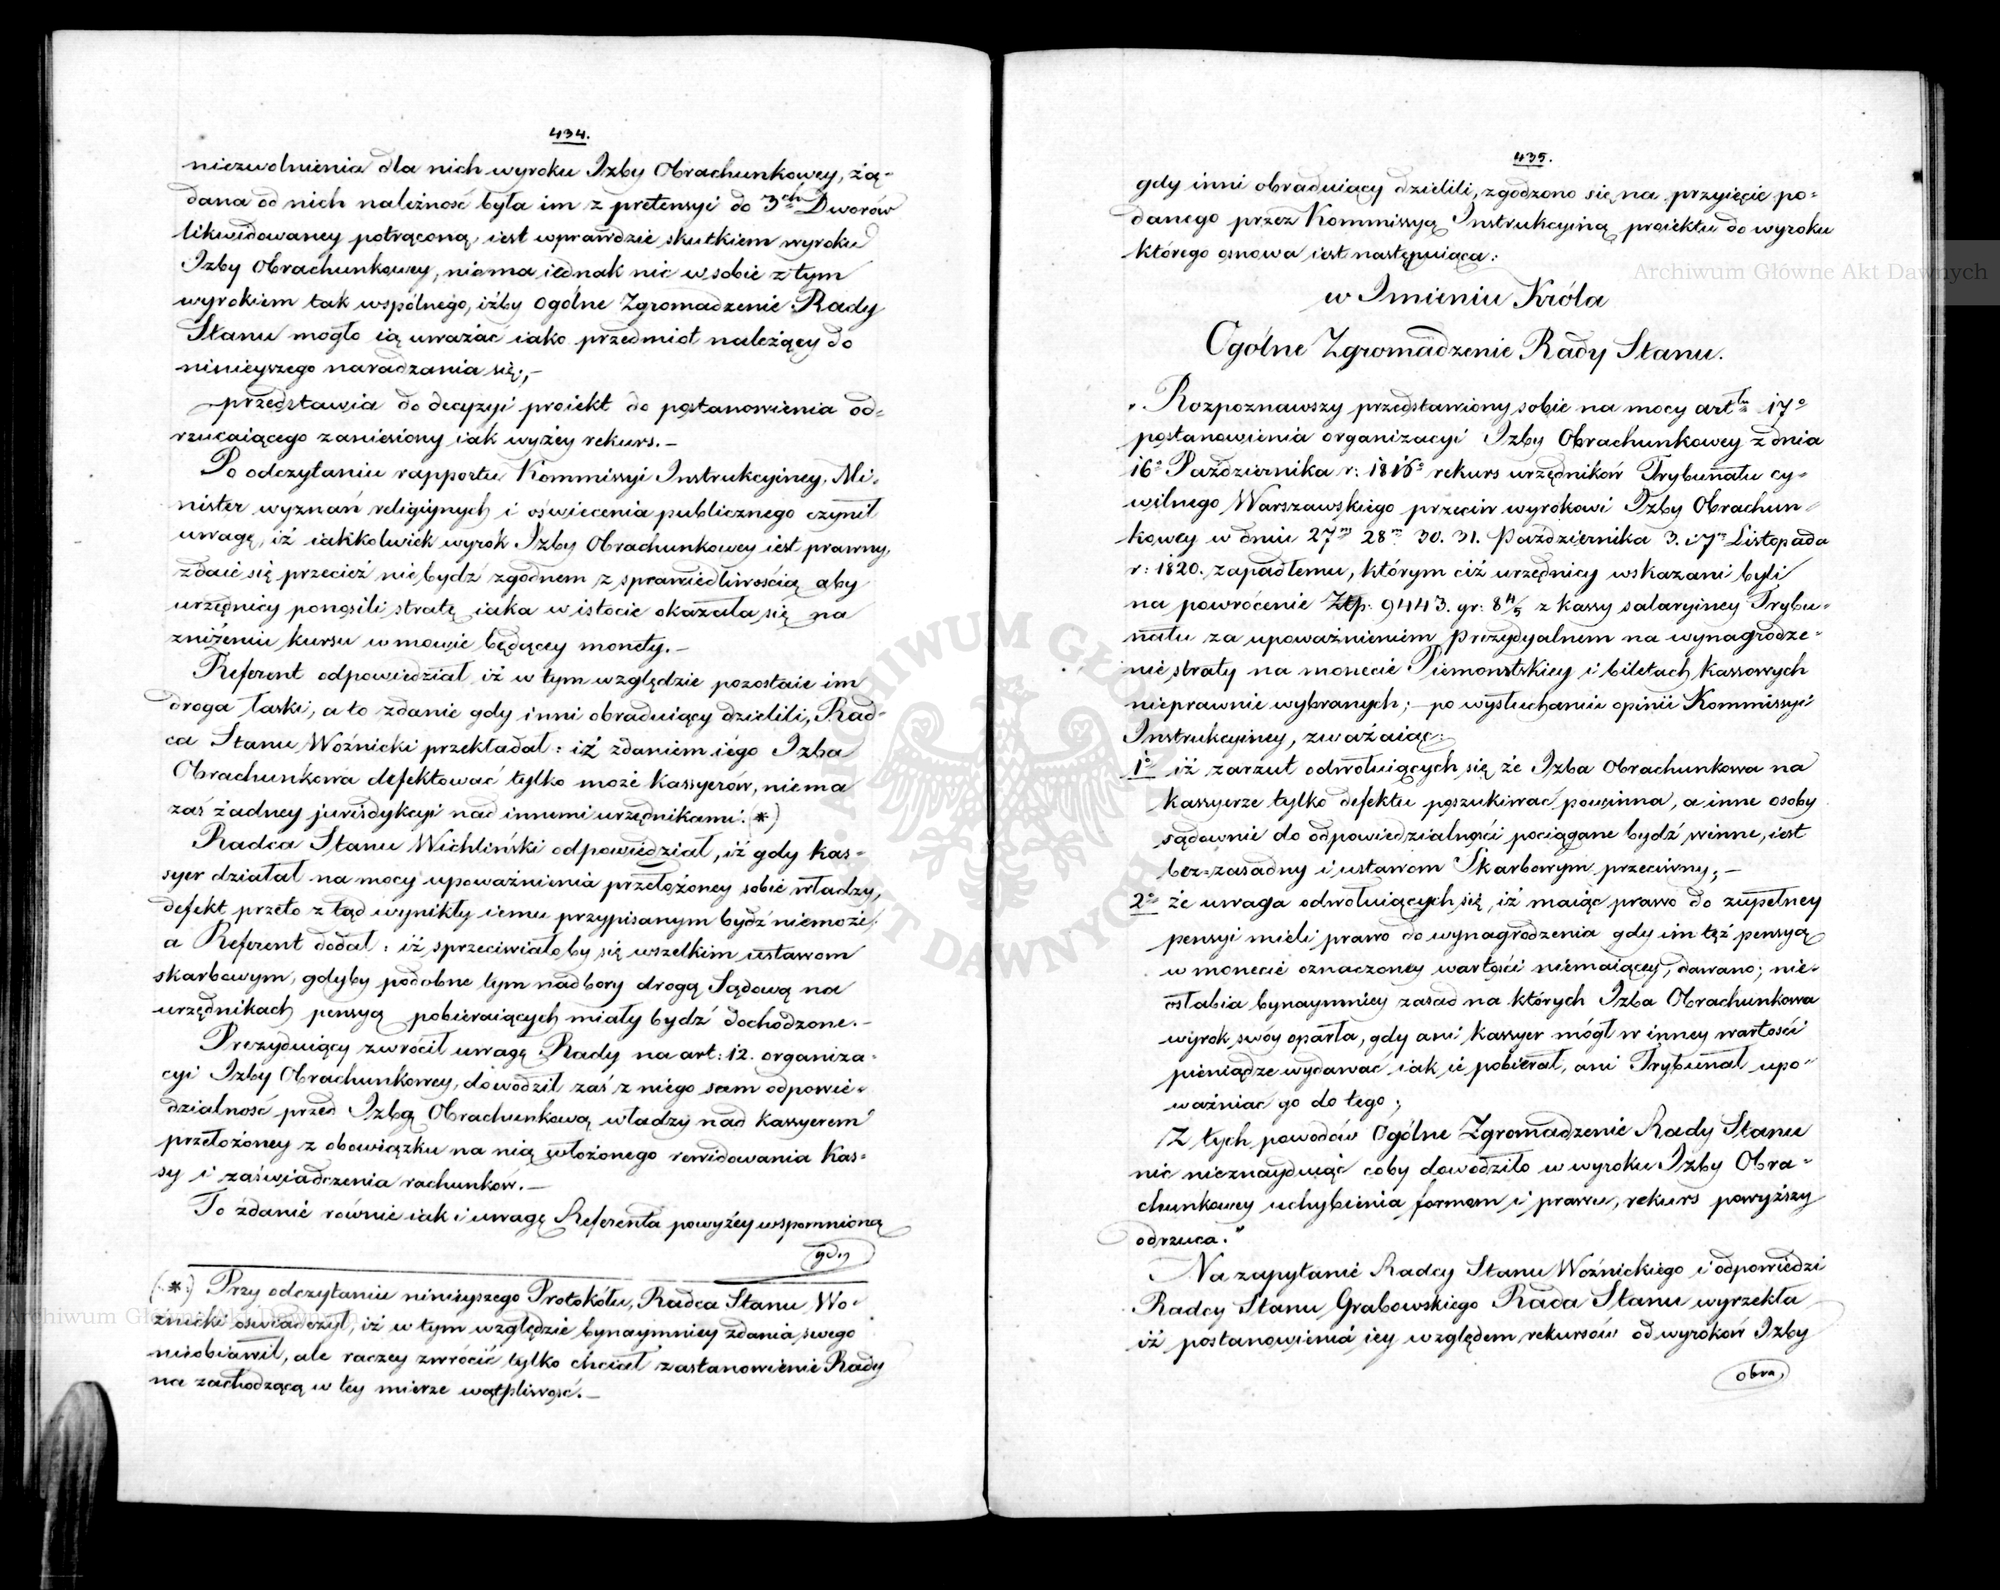 434.
niezwolnienia dla nich wyroku Izby Obrachunkowey, żą-
dana od nich należność była im z pretensyi do 3ch Dworów
likwidowaney potrąconą, iest wprawdzie skutkiem wyroku
Izby Obrachunkowey, niema iednak nic w sobie z tym
wyrokiem tak wspólnego, iżby Ogólne Zgromadzenie Rady
Stanu mogło ią uważać iako przedmiot należący do
ninieyszego naradzania się;,-
przedstawia do decyzyi proiekt do postanowienia od-
rzucaiącego zaniesiony iak wyżey rekurs.-
Po odczytaniu rapportu Kommissyi Instrukcyiney, Mi-
nister wyznań religiynych i oświecenia publicznego czynił
uwagę, iż iakkolwiek wyrok Izby Obrachunkowey iest prawny,
zdaie się przecież nie bydź zgodnem z sprawiedliwością aby
urzędnicy ponosili stratę iaka w istocie okazała się na
zniżeniu kursu w mowie będącey monety.-
Referent odpowiedział iż w tym względzie pozostaie im
droga łaski, a to zdanie gdy inni obraduiący dzielili, Rad-
ca Stanu Woźnicki przekładał: iż zdaniem iego Izba
Obrachunkowa defektować tylko może Kassyerów, niema
zaś żadney jurisdykcyi nad innemi urzędnikami. (*)
Radca Stanu Wichliński odpowiedział, iż gdy Kas-
syer działał na mocy upoważnienia przełożoney sobie władzy,
defekt przeto z tąd wynikły iemu przypisanym bydź niemoże;
a Referent dodał: iż sprzeciwiałoby się wszelkim ustawom
skarbowym, gdyby podobne tym nadbory drogą Sądową na
urzędnikach pensyą pobieraiących miały bydź dochodzone.-
Prezyduiący zwrócił uwagę Rady na art: 12. organiza-
cyi Izby Obrachunkowey, dowodził zaś z niego sam odpowie-
dzialność przed Izbą Obrachunkową władzy nad Kassyerem
przełożoney z obowiązku na nią włożonego rewidowania Kas-
sy i zaświadczenia rachunków.-
To zdanie równie iak i uwagę Referenta powyżey wspomnioną
gdy
(*) Przy odczytaniu ninieyszego Protokółu, Radca Stanu Wo-
źnicki oświadczył, iż w tym względzie bynaymniey zdania swego
nieobiawił, ale raczey zwrócić tylko chciał zastanowienie Rady
na zachodzącą w tey mierze wątpliwość.-
435.
gdy inni obraduiący dzielili, zgodzono się na przyięcie po-
danego przez Kommissyą Instrukcyiną proiektu do wyroku
którego osnowa iest następuiąca:
w Imieniu Króla
Ogólne Zgromadzenie Rady Stanu.
„Rozpoznawszy przedstawiony sobie na mocy artłu 17o
postanowienia organizacyi Izby Obrachunkowey z dnia
16o Października r: 1816o rekurs urzędników Trybunału cy-
wilnego Warszawskiego przeciw wyrokowi Izby Obrachun-
kowey w dniu 27m 28m 30. 31. Października 3. i 7m Listopada
r: 1820. zapadłemu, którym ciż urzędnicy wskazani byli
na powrócenie Złp. 9443. gr: 8 4/5 z kassy salaryiney Trybu-
nału za upoważnieniem Prezydyalnem na wynagrodze-
nie straty na monecie Piemontskiey i biletach kassowych
nieprawnie wybranych; - po wysłuchaniu opinii Kommissyi
Instrukcyiney, zważaiąc:
1o iż zarzut odwołuiących się że Izba Obrachunkowa na
Kassyerze tylko defektu poszukiwać powinna, a inne osoby
sądownie do odpowiedzialności pociągane bydź winne, iest
bez=zasadny i ustawom Skarbowym przeciwny; -
2o że uwaga odwołuiących się, iż maiąc prawo do zupełney
pensyi mieli prawo do wynagrodzenia gdy im tęż pensyą
w monecie oznaczoney wartości niemaiącey, dawano; nie-
osłabia bynaymniey zasad na których Izba Obrachunkowa
wyrok swóy oparła, gdy ani Kassyer mógł w inney wartości
pieniądze wydawać iak ie pobierał, ani Trybunał upo-
ważniać go do tego;
Z tych powodów Ogólne Zgromadzenie Rady Stanu
nic nieznayduiąc coby dowodziło w wyroku Izby Obra-
chunkowey uchybienia formom i prawu, rekurs powyższy
odrzuca."
Na zapytanie Radcy Stanu Woźnickiego i odpowiedzi
Radcy Stanu Grabowskiego Rada Stanu wyrzekła
iż postanowienia iey względem rekursów od wyroków Izby
obra,
Archiwum Główne Akt Dawnych
Archiwum Główne Akt Dawnych
ARCHIWUM GŁÓWNE AKT DAWNYCH